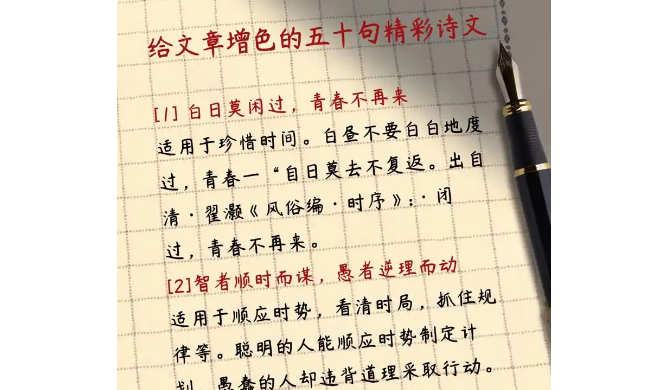 给文章增色的五十句精彩诗文
[1] 白日莫闲过，青春不再来
适用于珍惜时间。白昼不要白白地度
过，青春一“自日莫去不复返。出自
清·翟灏《风俗编·时序》：· 闭
过，青春不再来。
[2]智者顺时而谋，愚者逆理而动
适用于顺应时势，看清时局，抓住规
律等。聪明的人能顺应时势制定计
划，愚蠢的人却违背道理采取行动。